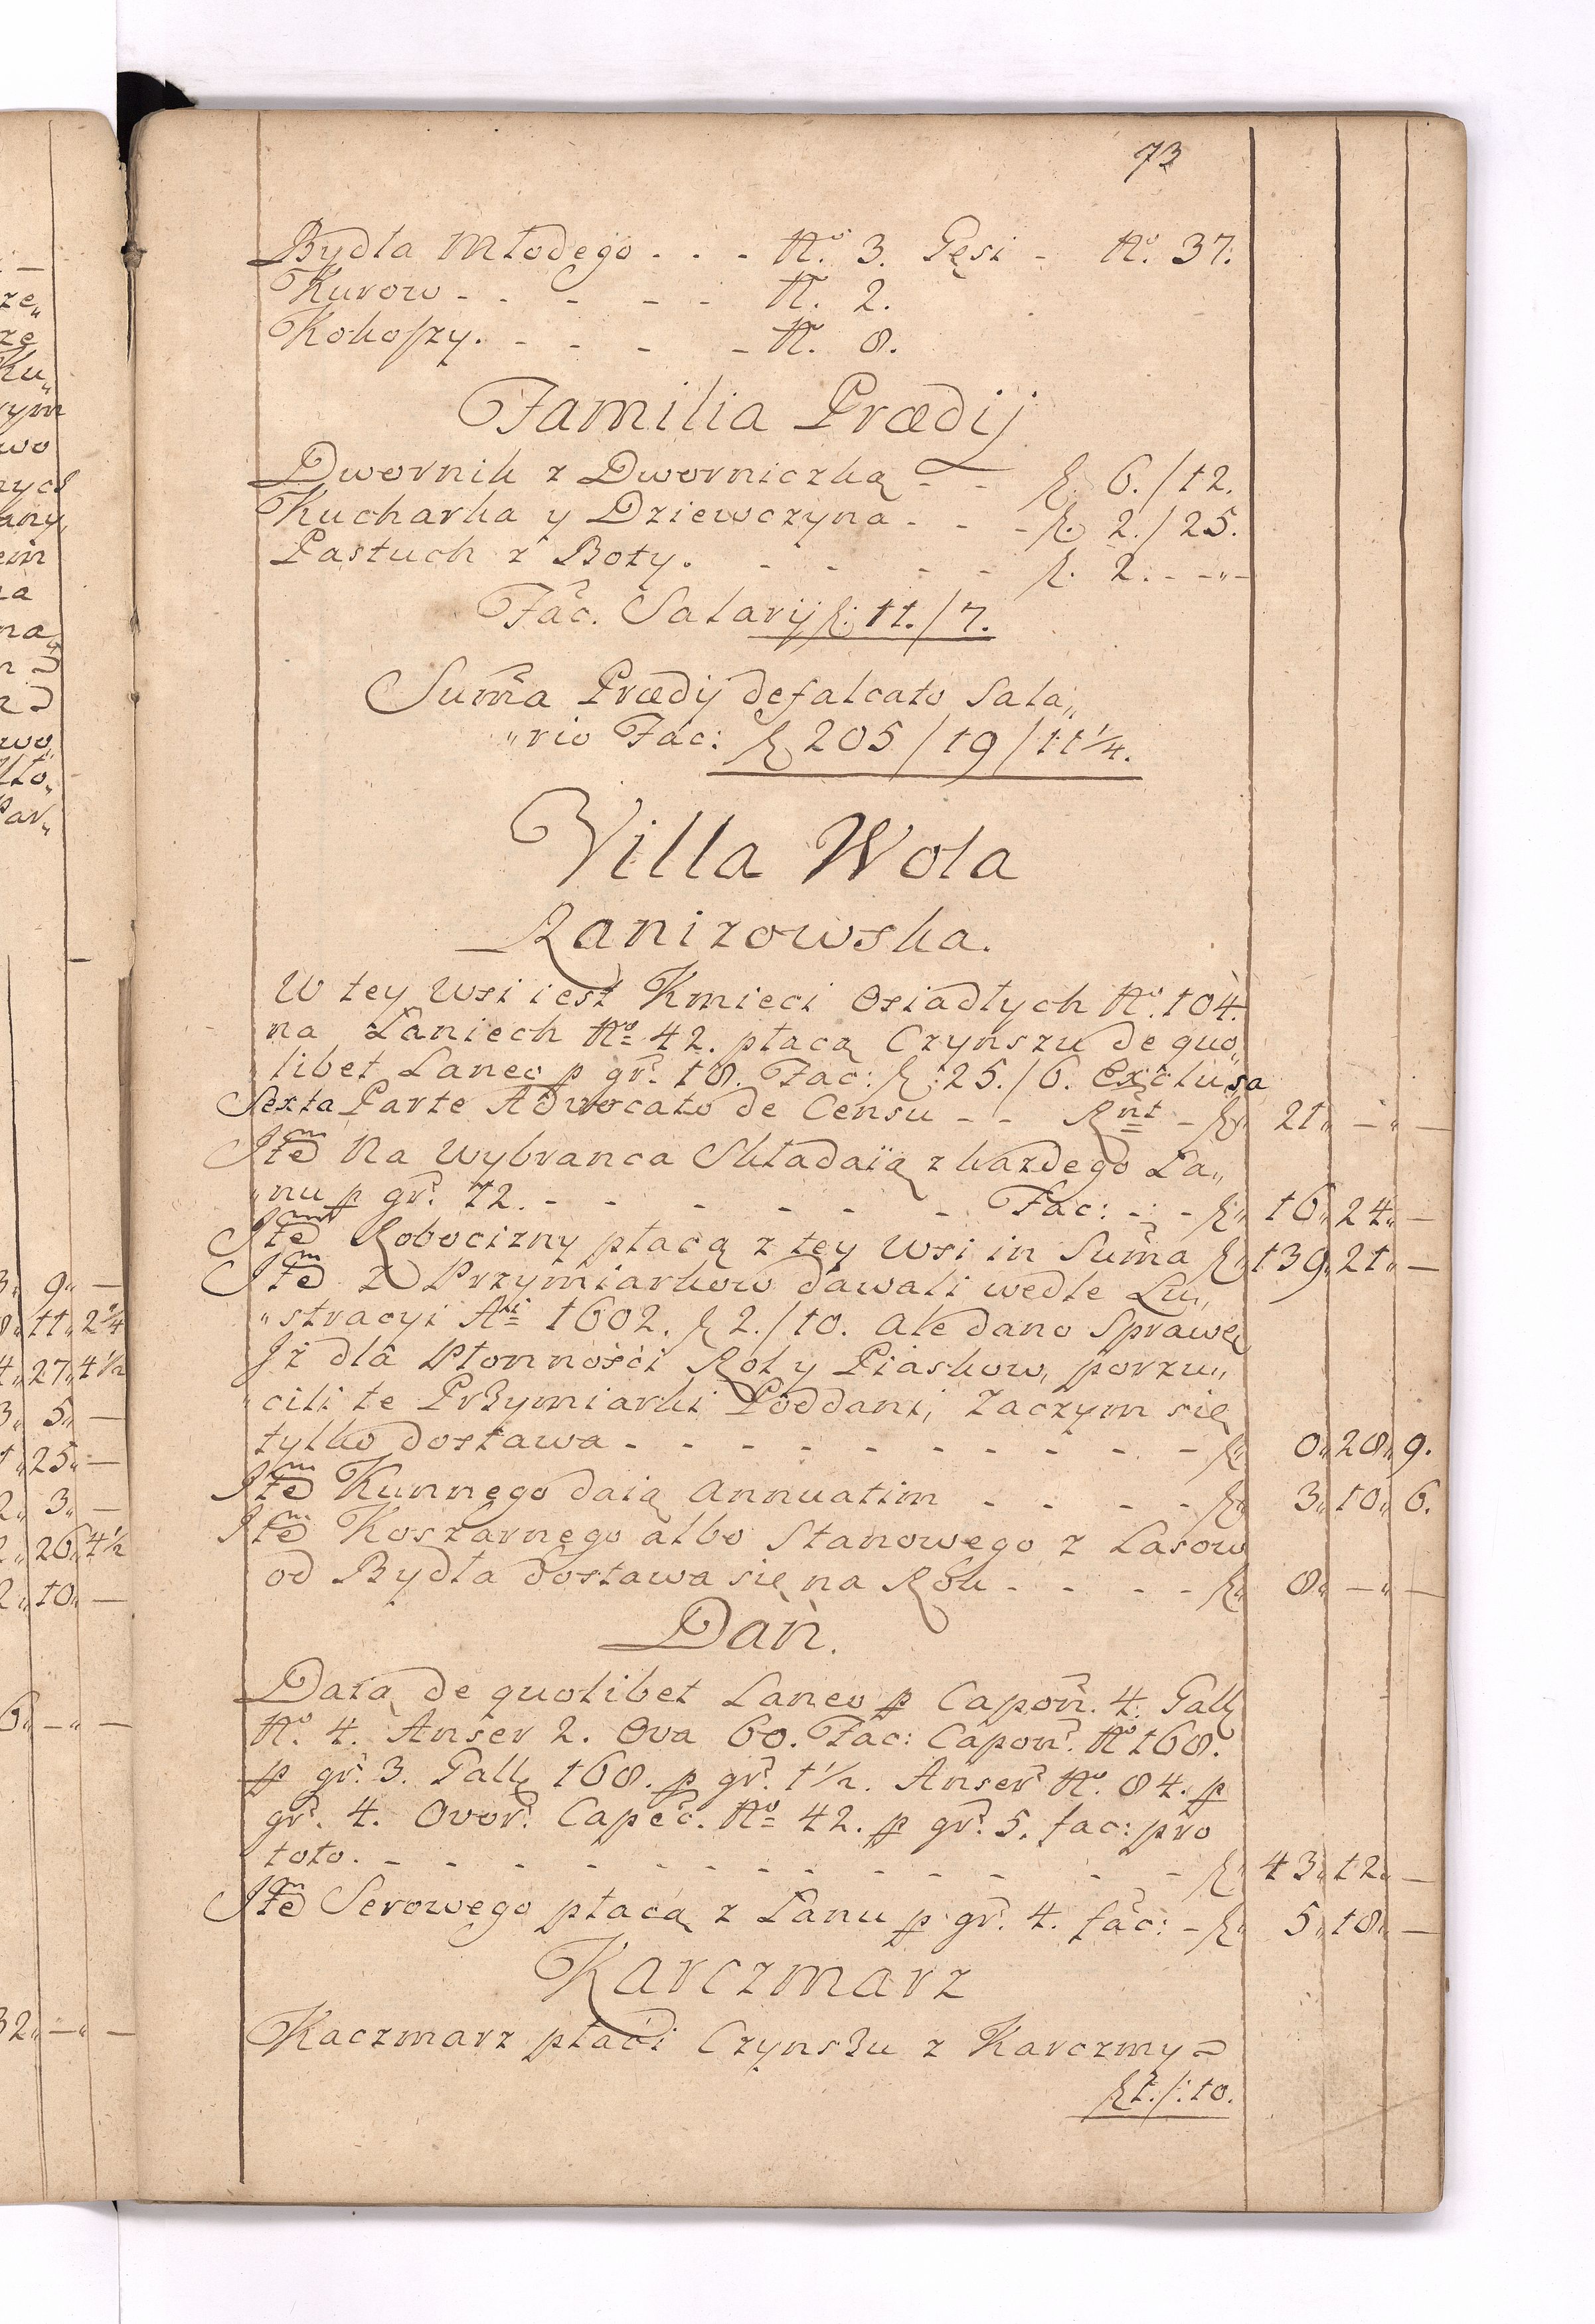 73
Bydła Młodego - - - N.º 3. Gęsi - N.º 37.
Kurow - - - - - N. 2.
Kokoszy. - - - - N. 8.
Familia Prædij
Dwornik z Dworniczką - - f. 6./12.
Kucharka y Dziewczyna - - - f. 2./25.
Pastuch z Boty. - - - - f. 2. - -"-
Fac. Salarij f. 11./7.
Suma Prædij defalcato Sala„
„rio Fac: f 205/19/11¼.
Villa Wola
Ranizowska.
W tey Wsi iest Kmieci Osiadłych N.º 104.
na Łaniech Nº 42. płacą Czynszu de quo„
libet Laneo p gr. 18. Fac: f: 25./6. Exclusa
Sexta Parte Advocato de Censu - - Rnt - f„ 21„ —„ —
Itẽ Na Wybranca Składaią z kazdego Ła„
„nu p gr. 12. - - - - - - - Fac: - - f„ 16„ 24„ —
Itẽ Robocizny płacą z tey Wsi in Suma f„ 139„ 21„ —
Itẽ Z Przymiarkow dawali wedle Lu„
„stracyi Aⁿⁱ 1602. f 2./10. ale dano Sprawę
Iż dla Płonności Roly Piaskow, porzu„
„cili te Przymiarki Poddani, Zaczym się
tylko dostawa - - - - - - - - - - f„ 0„ 28„ 9.
Itẽ Kunnego daią annuatim - - - - f„ 3„ 10„ 6.
Itẽ Koszarnego albo Stanowego z Lasow
od Bydła dostawa się na Rok - - - - f„ 8„ —„ —
Dań.
Daią de quolibet Laneo p Capon. 4. Gall
N.º 4. Anser 2. Ova 60. Fac: Capon. Nº 168.
p gr. 3. Gall 168. p gr. 1½. Anser N.º 84. p
gr. 4. Ovor. Capec. Nº 42. p gr. 5. fac: pro
toto. - - - - - - - - - - - - f„ 43„ 12„ —
Itẽ Serowego płacą z Łanu p gr. 4. fac: - f„ 5„ 18„ —
Karczmarz
Kaczmarz płaci Czynszu z Karczmy =
f 1./:10.